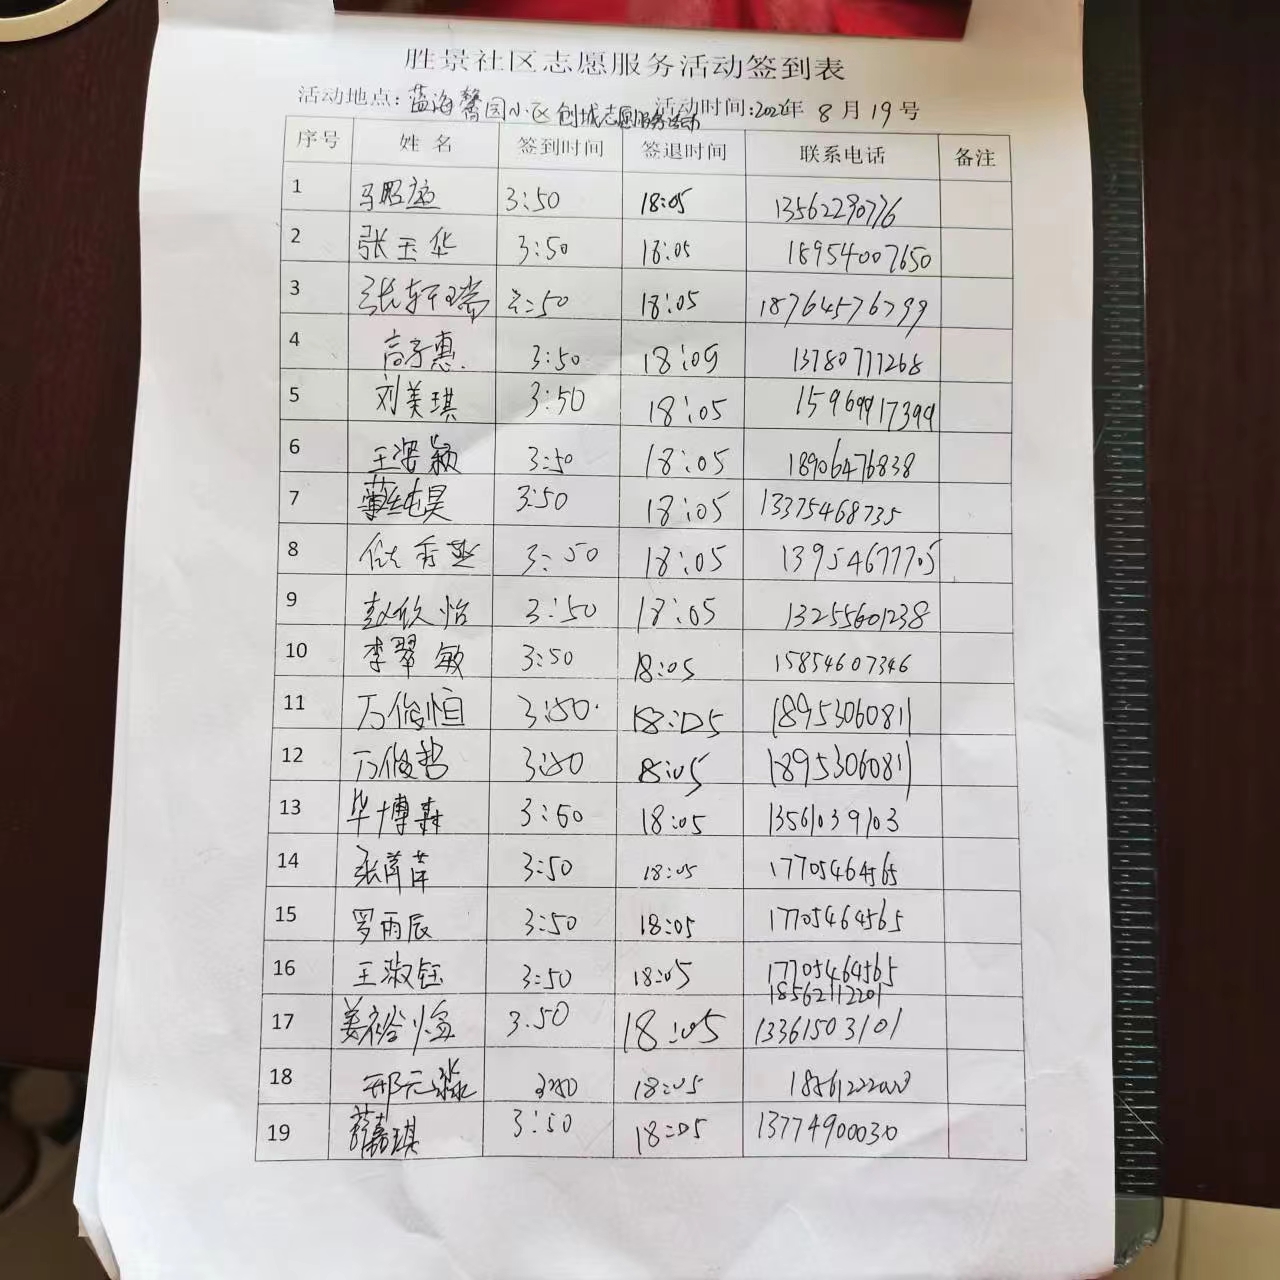 胜景社区志愿服务活动签到表
活动地点：蓝海馨园小区创城志愿服务活动 活动时间：2022年 8月19号
序号 姓名 签到时间 签退时间 联系电话 备注
1 3:50 18:05 13562290776
2 张玉华 3:50 18:05 18954007650
3 张轩瑞 3:50 18:05 18764576799
4 高子惠 3:50 18:09 13780711268
5 刘美琪 3:50 18:05 15969917399
6 王姿颖 3:50 18:05 18906476838
7 3:50 18:05 13375468735
8 3:50 18:05 13954677705
9 赵欣怡 3:50 18:05 13255601238
10 李翠敏 3:50 18:05 15854607346
11 万俊恒 3:50 18:05 18953060811
12 万俊哲 3:50 18:05 18953060811
13 毕博森 3:50 18:05 13561039103
14 3:50 18:05 17705464565
15 罗雨辰 3:50 18:05 17705464565
16 王淑钰 3:50 18:05 17705464565
18562112201
17 3.50 18:05 13361503101
18 3:50 18:05
19 3:50 18:05 13774900030